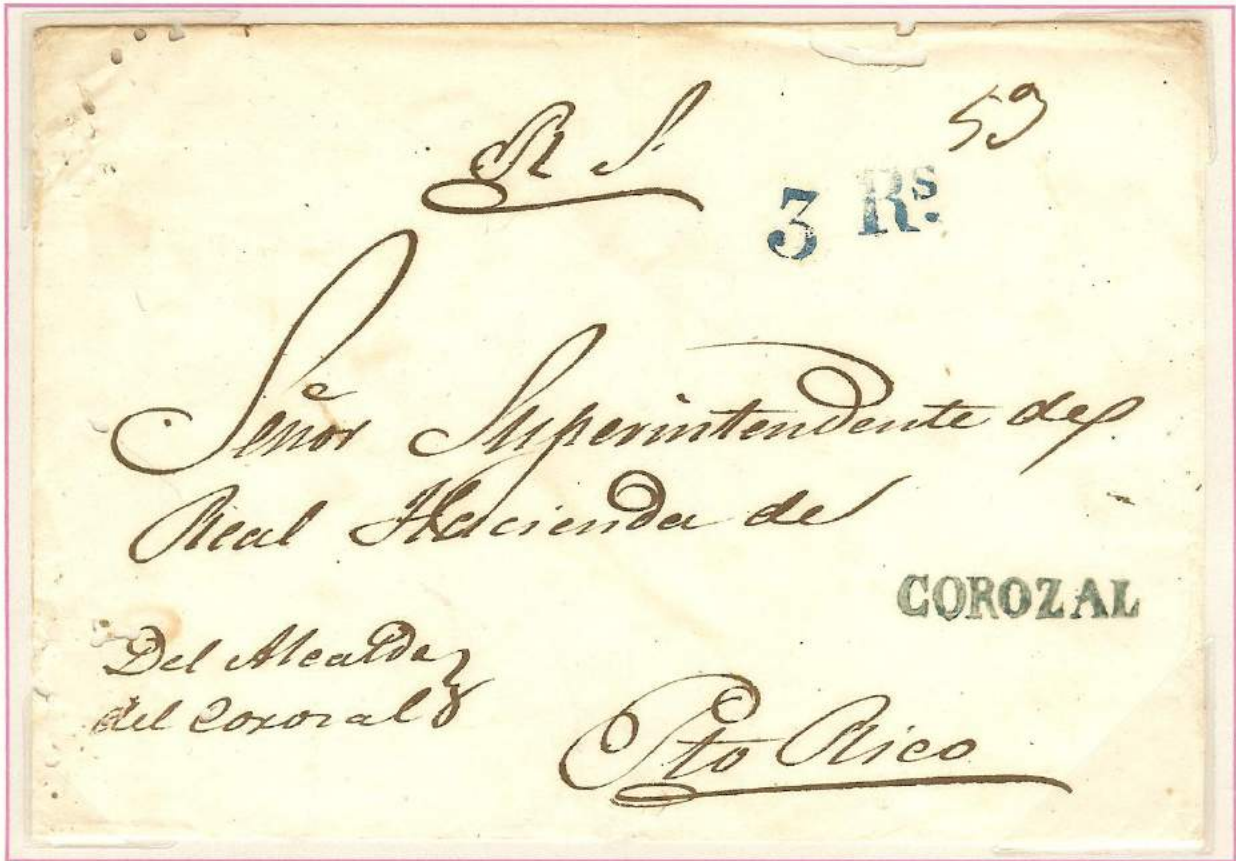 R S
53
3 Rs.
Señor Superintendente de
Real Hacienda de
COROZAL
Del Alcalde
del Corozal
Pto Rico